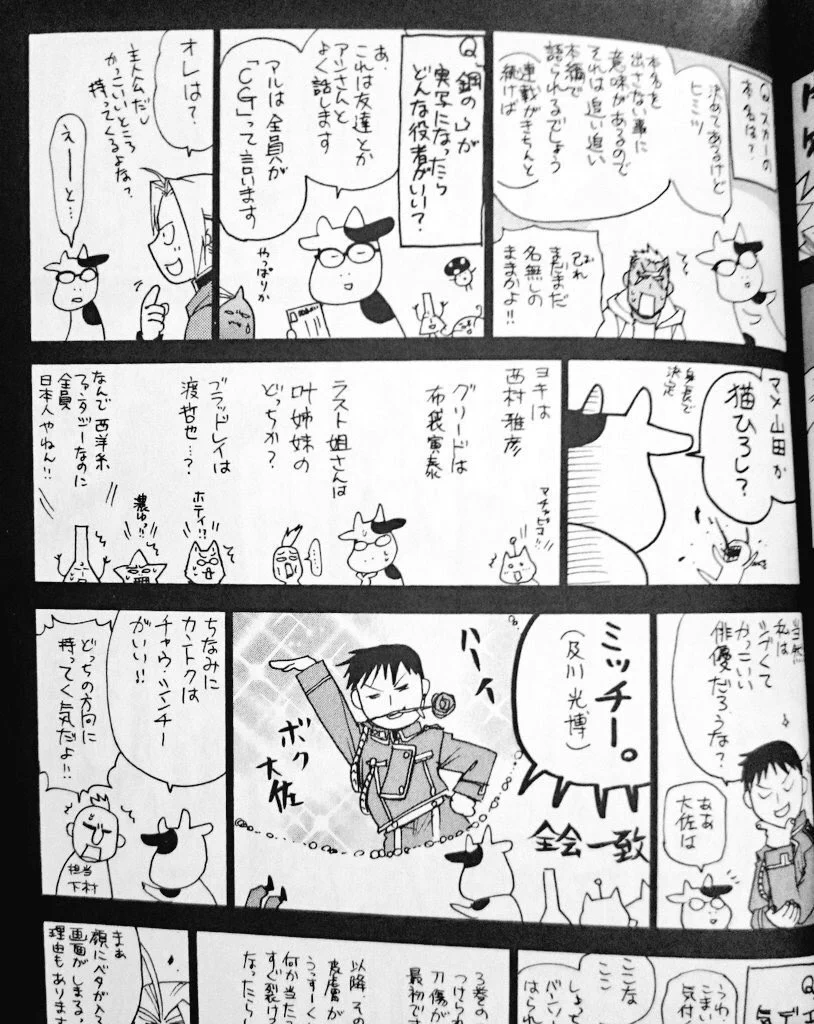 Q.スカーの
本名は?
決めてあるけど
ヒミツ
本名を
出さない事に
意味があるので
それは追い追い
本編で
語られるでしょう
連載がきちんと
続けば
己れ
まだまだ
名無しの
ままかよ!!
Q.「鋼の」が
実写になったら
どんな役者がいい?
あ、
これは友達とか
アシさんと
よく話します
アルは全員が
「CG」って言います
やっぱりか
オレは?
主人公だし
かっこいいところ
持ってくるよな?
えーーと…
マメ山田か
猫ひろし?
身長で
決定
ヨキは
西村雅彦
グリードは
布袋寅泰
ラスト姐さんは
叶姉妹の
どっちか?
ブラッドレイは
渡哲也…?
なんで西洋系
ファンタジーなのに
全員
日本人やねん!!
マチャピコ!!
……
ホテイ!!
濃ゆっ!!
当然
私は
シブくて
かっこいい
俳優だろうな?
ああ
大佐は
ミッチー。
(及川光博)
全会一致
ハーイ
ボク
大佐
ちなみに
カントクは
チャウ・シンチー
がいい!!
どっちの方向に
持ってく気だよ!!
担当
下村
うわ
こまい
気付
こんな
ここ
しょっち
バンソー
はられ
3巻の
つけられ
刀傷が
最初です
以降、その
皮膚が
うっすーく
何か当たっ
すぐ裂ける
なったらし
まあ
顔にベタが入る
画面がしまる。
理由もあります